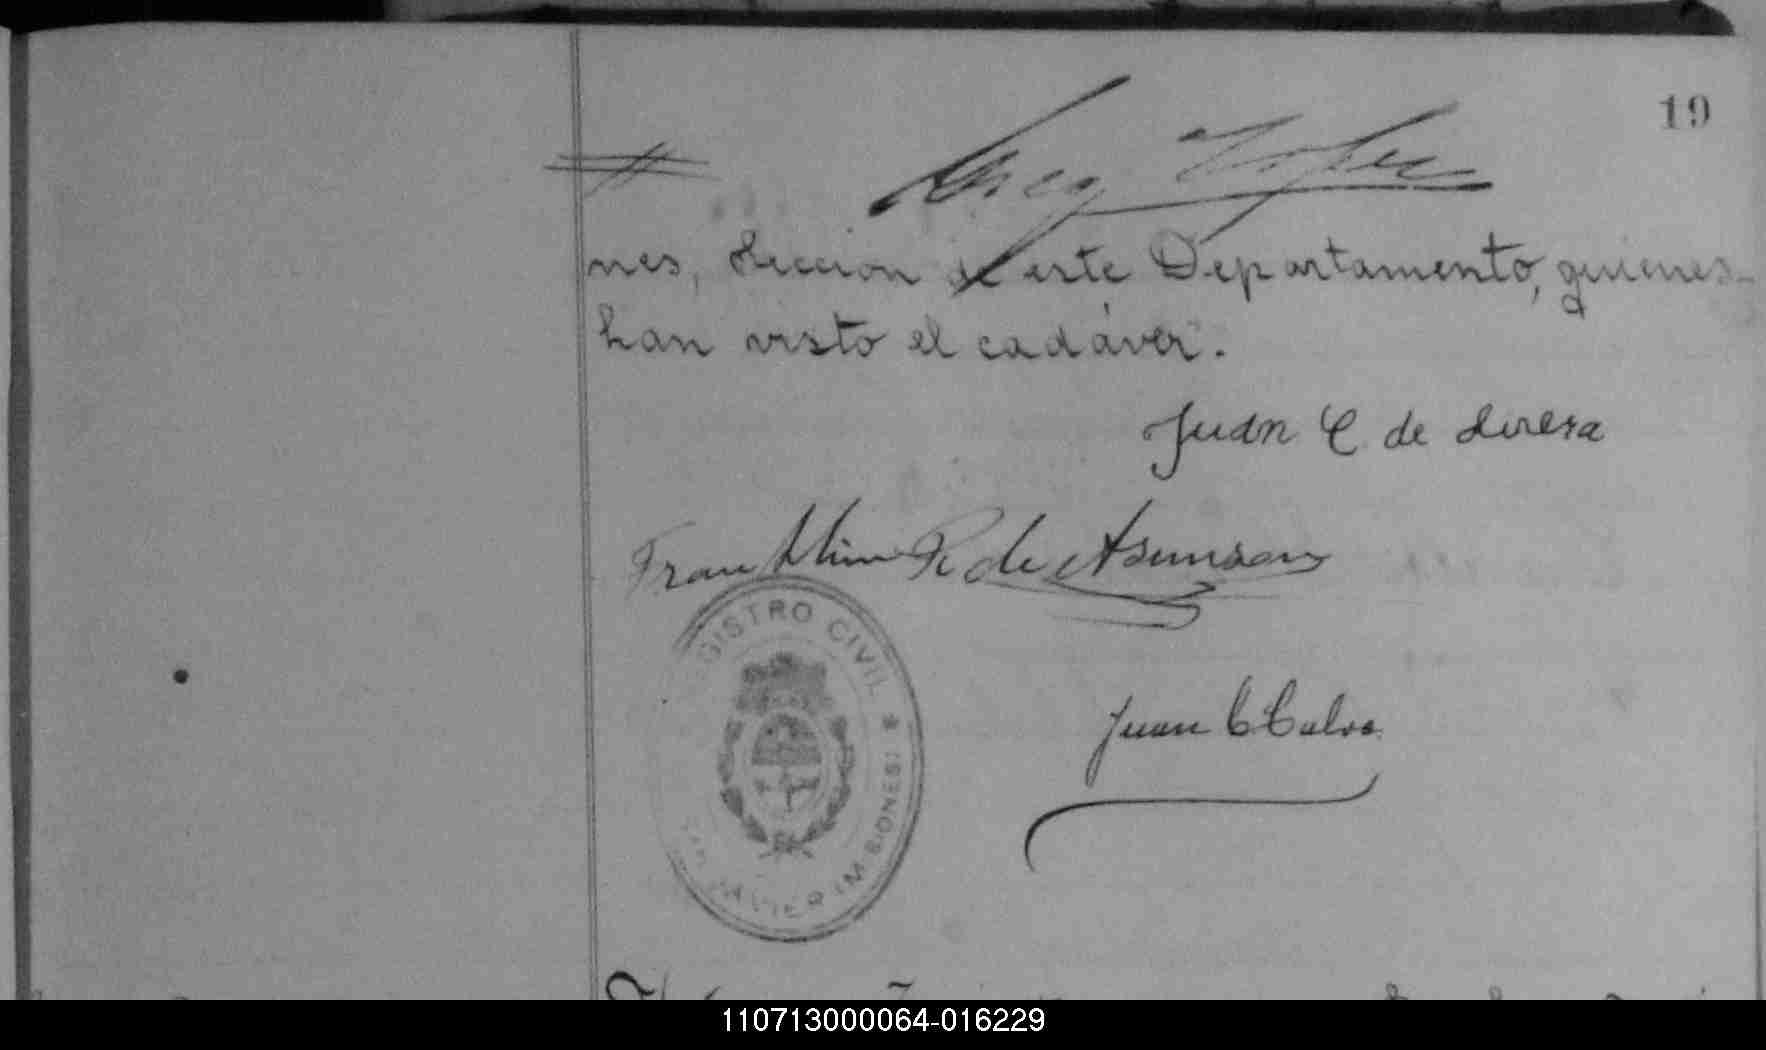 19
nes, seccion de este Departamento, quienes
han visto el cadáver.
Juan C de
Franklin R de Asunsao
REGISTRO CIVIL * SAN JAVIER (MISIONES)
Juan C Calvo
110713000064-016229